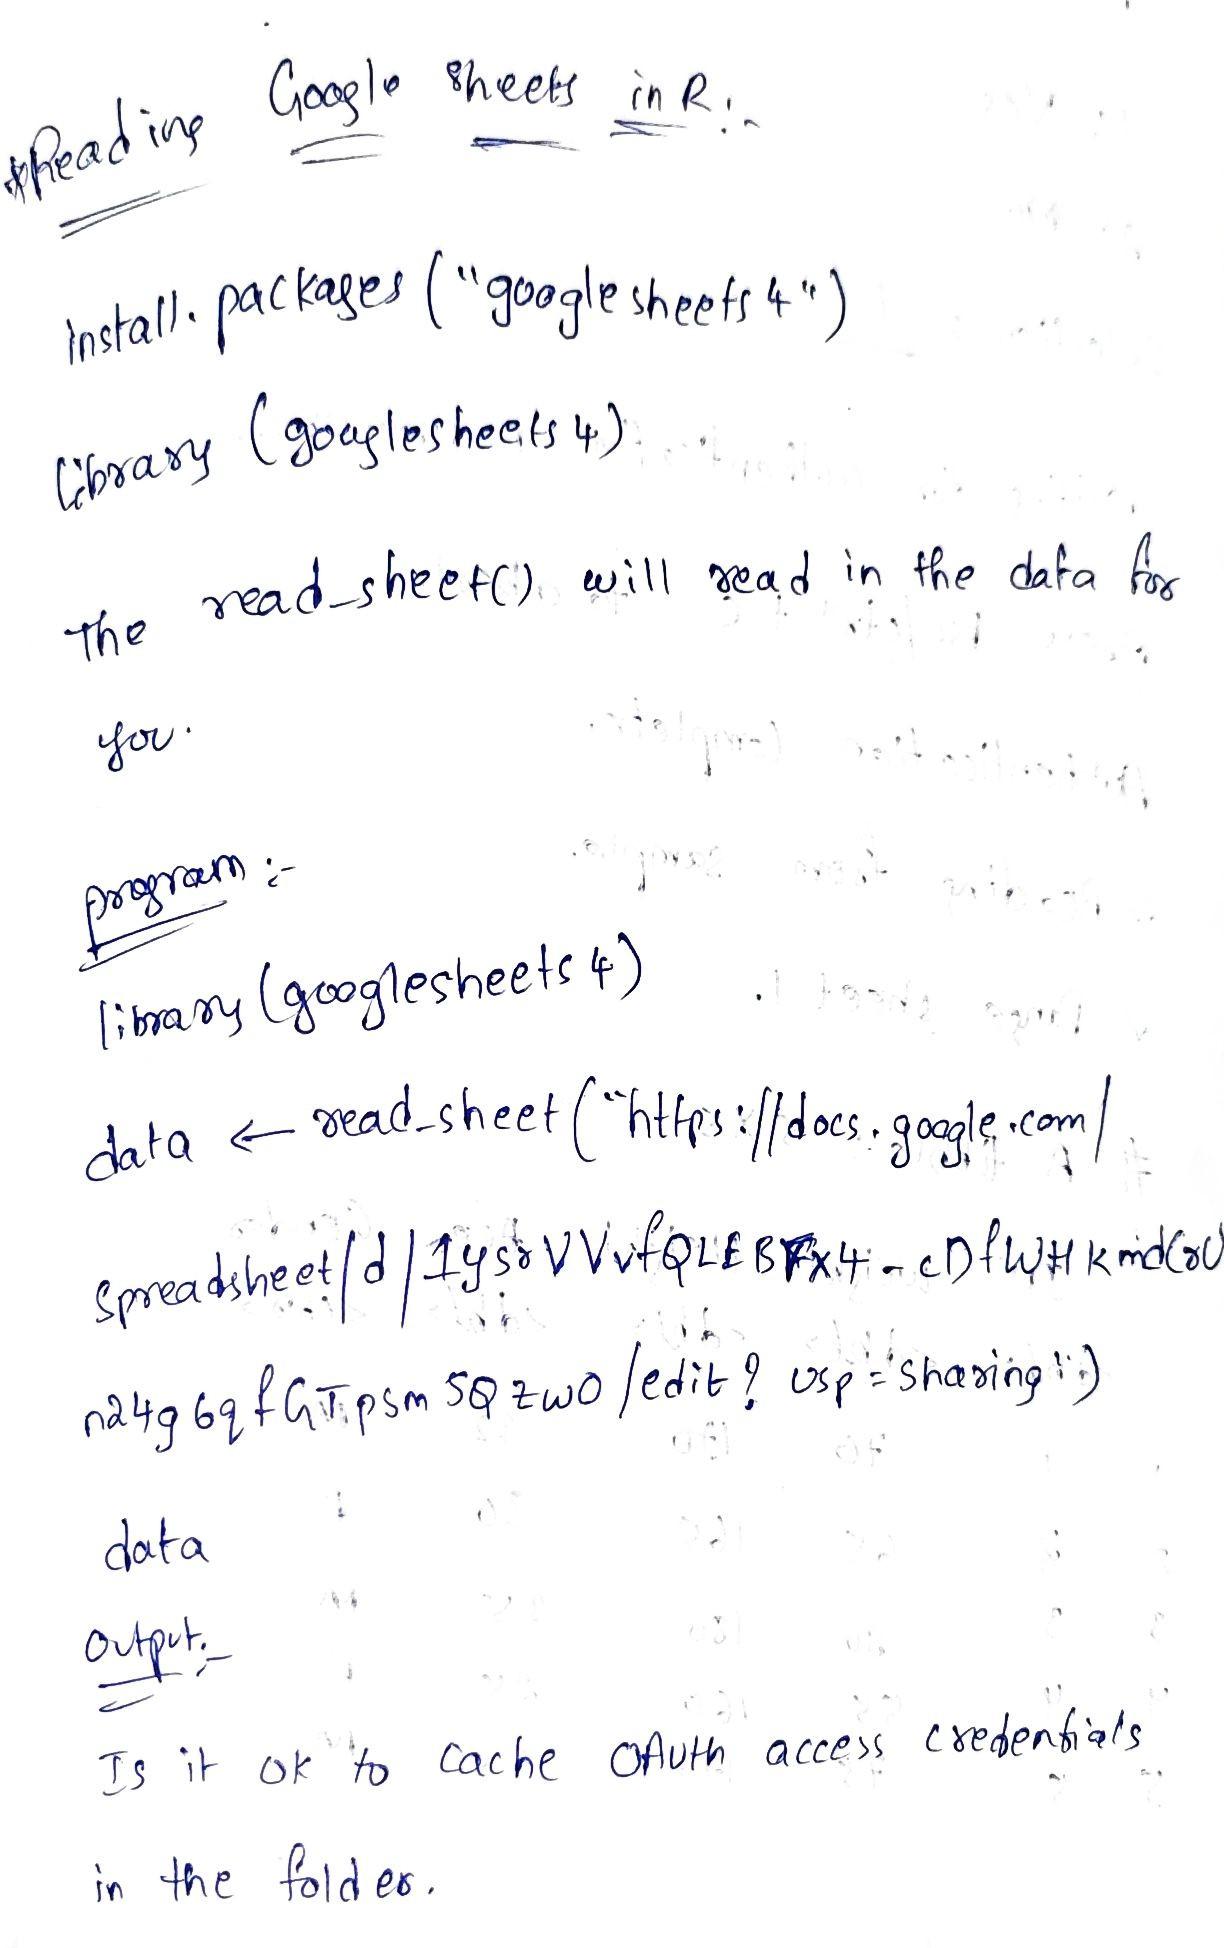 *Reading Google sheets in R:-
install.packages ("googlesheets4")
library (googlesheets4)
The read_sheet() will read in the data for
you.
program:-
library (googlesheets4)
data ← read_sheet ("https://docs.google.com/
spreadsheet/d/1ysrVVvfQLEBFx4-cDfWHKmdCrU
n24g6qfGTpsm5QzwO/edit? usp=sharing")
data
output:-
Is it ok to cache OAuth access credentials
in the folder.